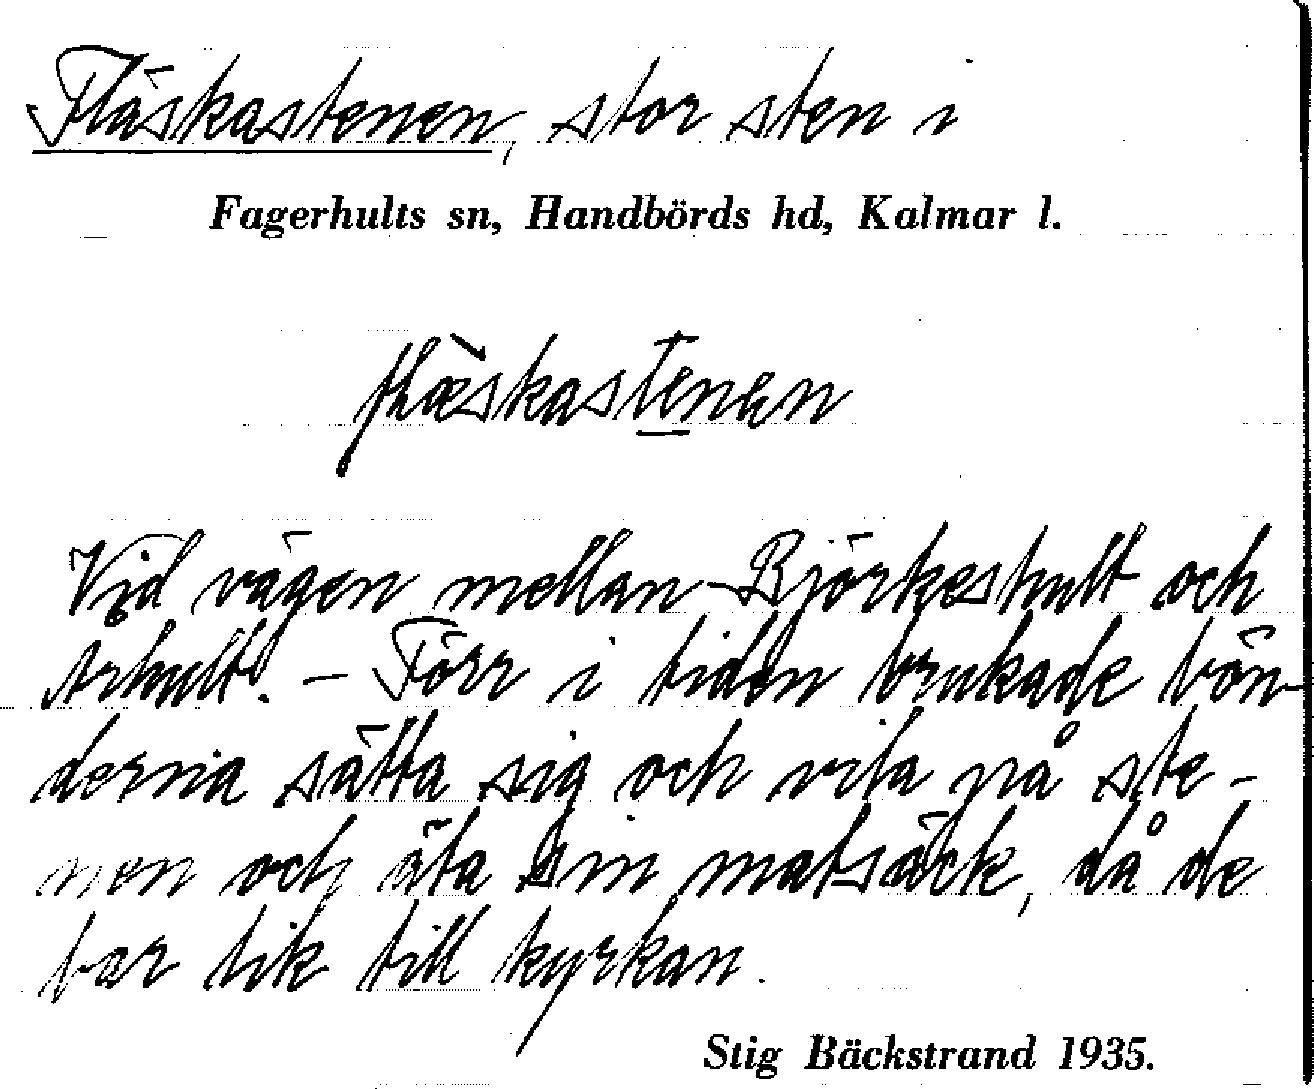 Fläskastenen, stor sten i
Fagerhults sn, Handbörds hd, Kalmar l.
flæ̀skastenen
Vid vägen mellan Björkeshult och
Arhult. – Förr i tiden brukade bön-
derna sätta sig och vila på ste-
nen och äta sin matsäck, då de
bar lik till kyrkan.
Stig Bäckstrand 1935.